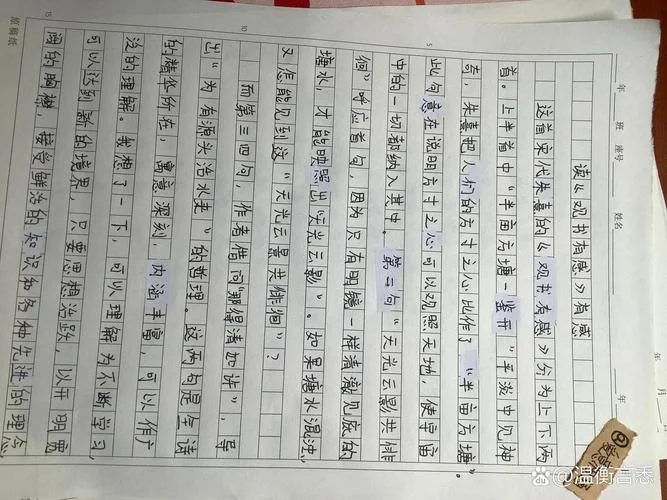 年 班 座号 姓名 年 月
读《观书有感》有感
这首宋代朱熹的《观书有感》分为上下两
首。上半首中“半亩方塘一鉴开”平淡中见神
奇，朱熹把人们的方寸之心比作了“半亩方塘”。
此句意在说明方寸之心可以观照天地，使宇宙
中的一切都纳入其中。第二句“天光云影共徘
徊”呼应首句，因为只有明镜一样清澈见底的
塘水，才能映照出“天光云影”。如果塘水混浊，
又怎能见到这“天光云影共徘徊”？
而第三四句，作者借问“那得清如许”，导
出“为有源头活水来”的哲理。这两句是全诗
的精华所在，寓意深刻 内涵丰富，可以作广
泛的理解。我想了一下，可以理解为不断学习，
可以达到新的境界，只要思想活跃，以开明宽
阔的胸襟，接受鲜活的知识和各种先进的理念
5
10
15
原稿纸
Bai百度 @温衡言悉